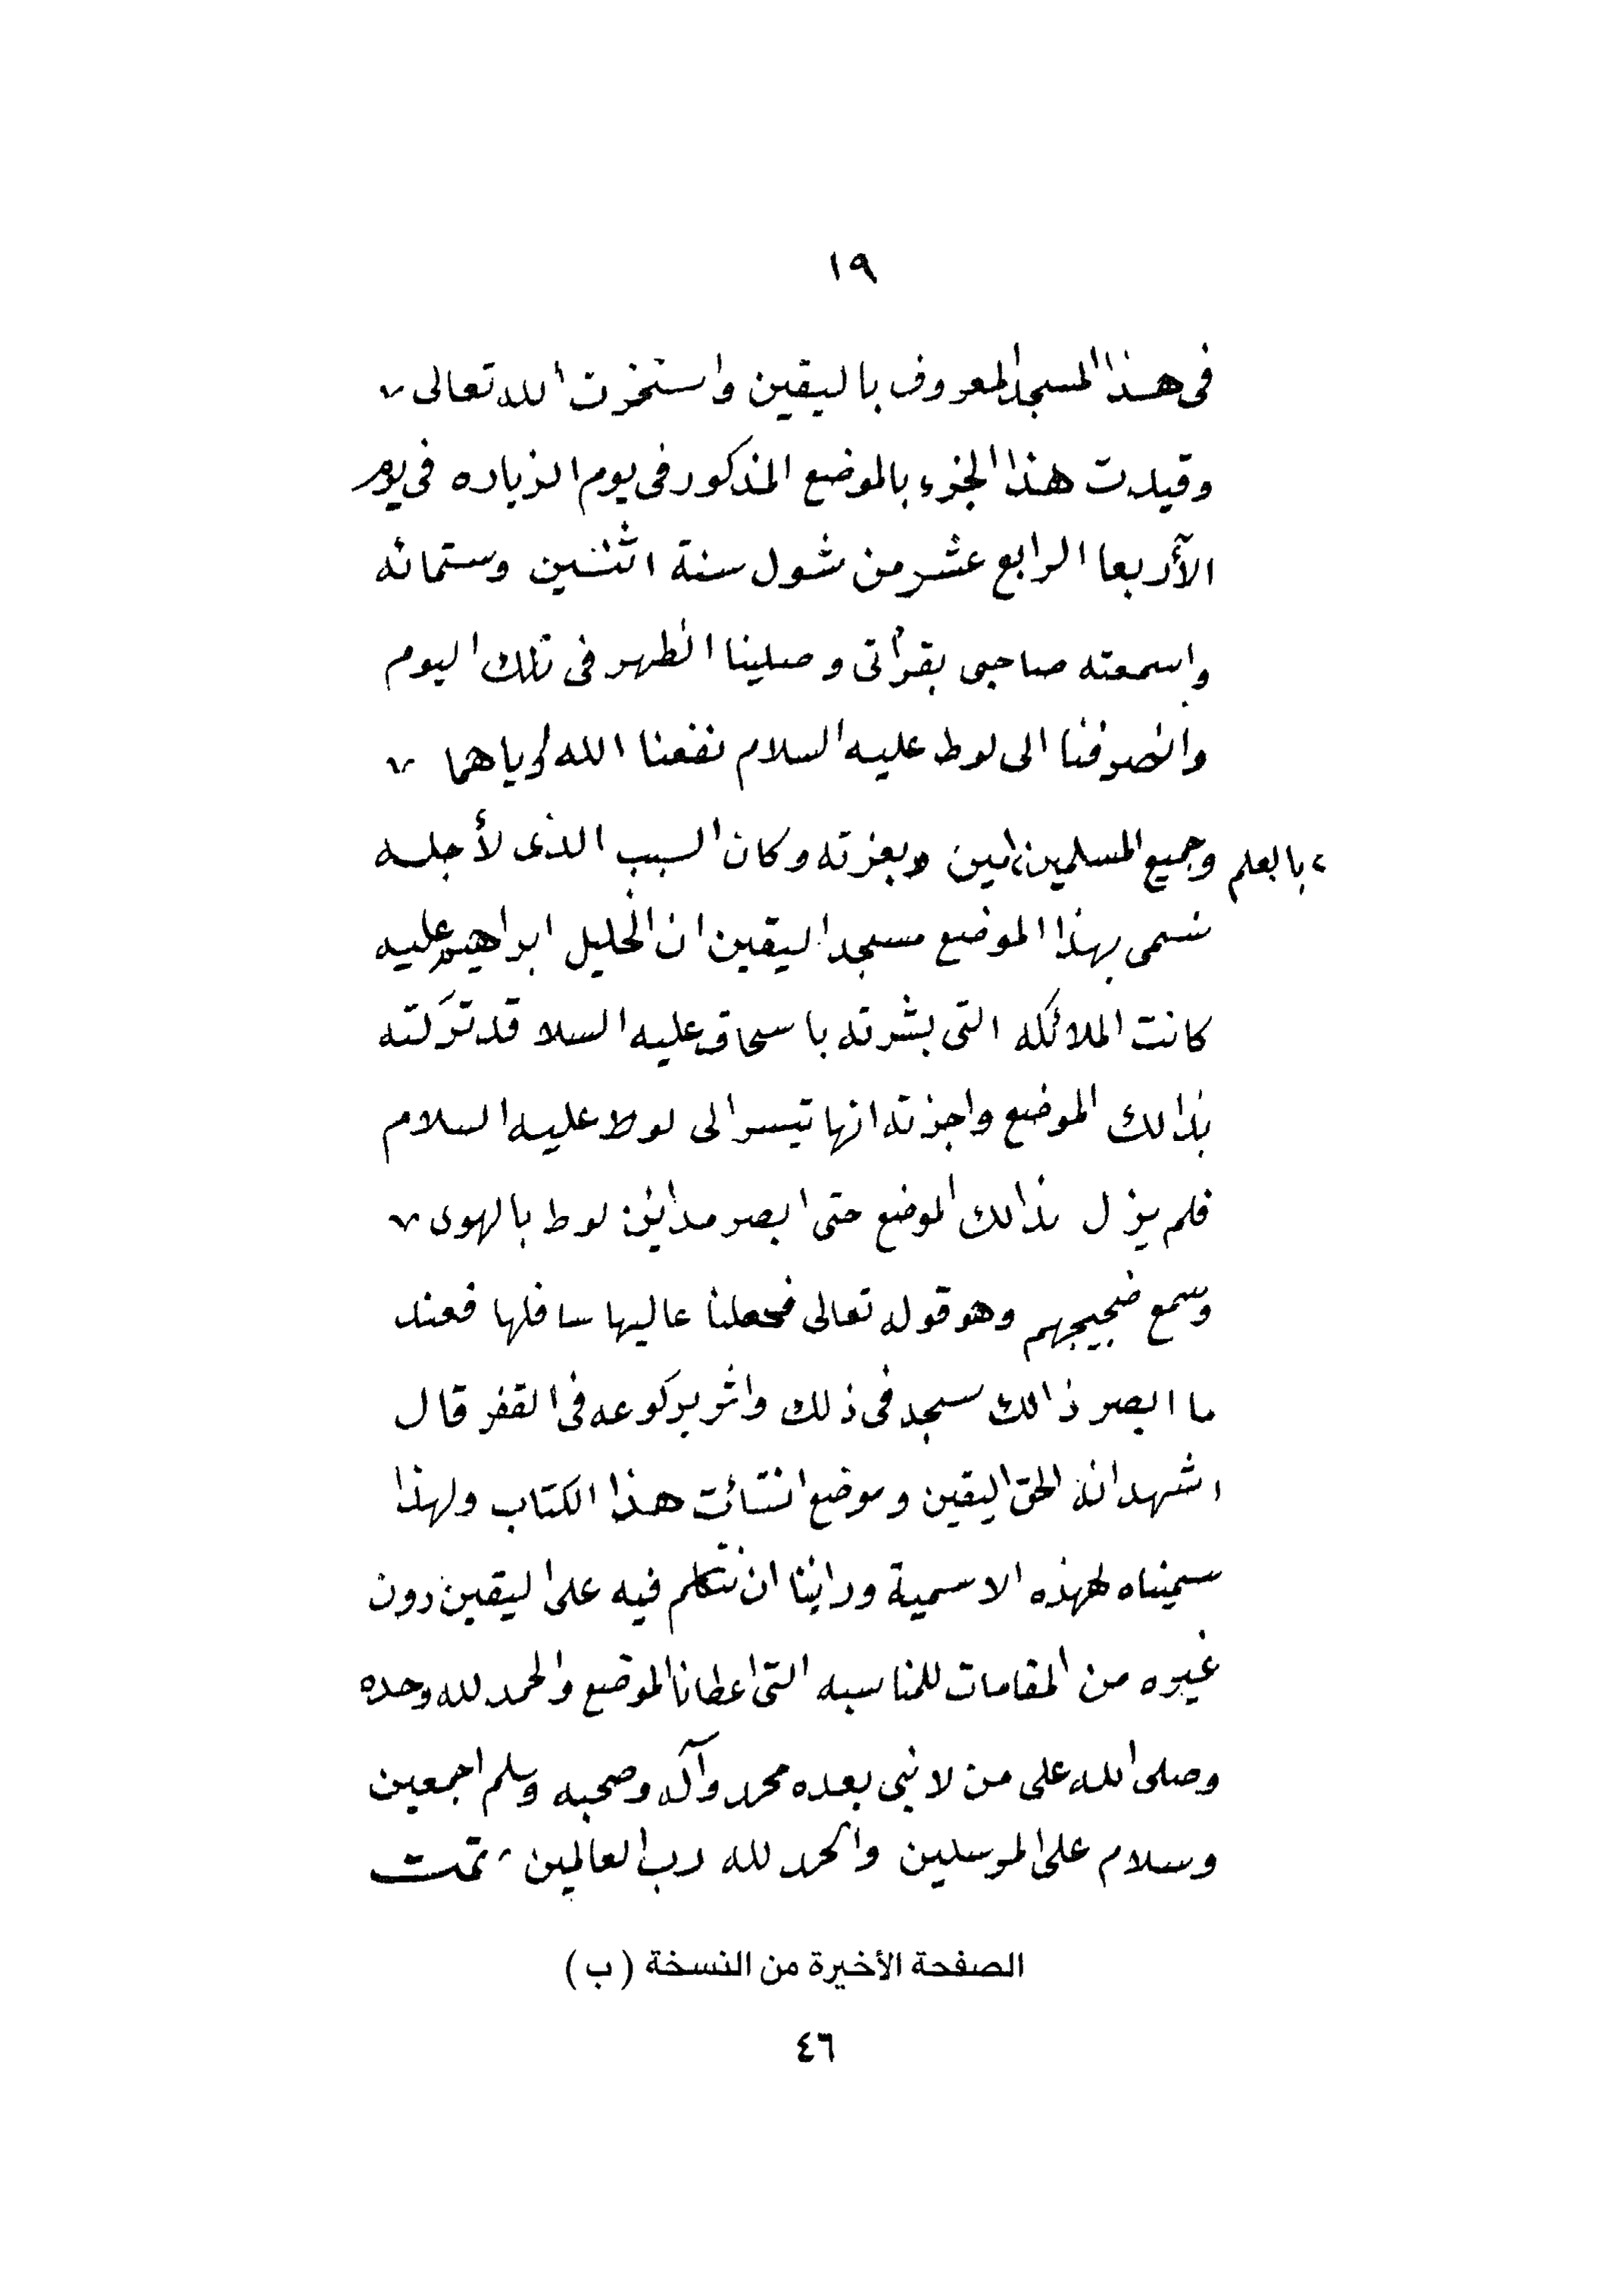 ١٩
في هذا المسجد المعروف باليقين واستخرت الله تعالى
وقيدت هذا الجزء بالموضع المذكور في يوم الزياره في يوم
الأربعا الرابع عشر من شول سنة اثنتين وستمائه
واسمعته صاحبي بقرأتي وصلينا الظهر في تلك اليوم
وانصرفنا الى لوط عليه السلام نفعنا الله واياهما
بالعلم وجميع المسلمين امين وبعزته وكان السبب الذي لأجله
تسمى بهذا الموضع مسجد اليقين ان الخليل ابراهيم عليه
كانت الملائكه التي بشرته باسحاق عليه السلا قد تركته
بذالك الموضع واخبرته انها تيسر الى لوط عليه السلام
فلم يزل بذالك الموضع حتى ابصر مداين لوط بالهوى
وسمع ضجيجهم وهو قوله تعالى فجعلنا عاليها سافلها فعند
ما ابصر ذالك سجد في ذلك واثر بركوعه في القفر قال
اشهد انه الحق اليقين وموضع انتشائت هذا الكتاب ولهذا
سميناه لهذه الاسمية وراينا ان نتكلم فيه على اليقين دون
غيره من المقامات للمناسبه التي اعطانا الموضع والحمد لله وحده
وصلى الله على من لا نبي بعده محمد وآله وصحبه وسلم اجمعين
وسلام على المرسلين والحمد لله رب العالمين تمت
الصفحة الأخيرة من النسخة (ب)
٤٦